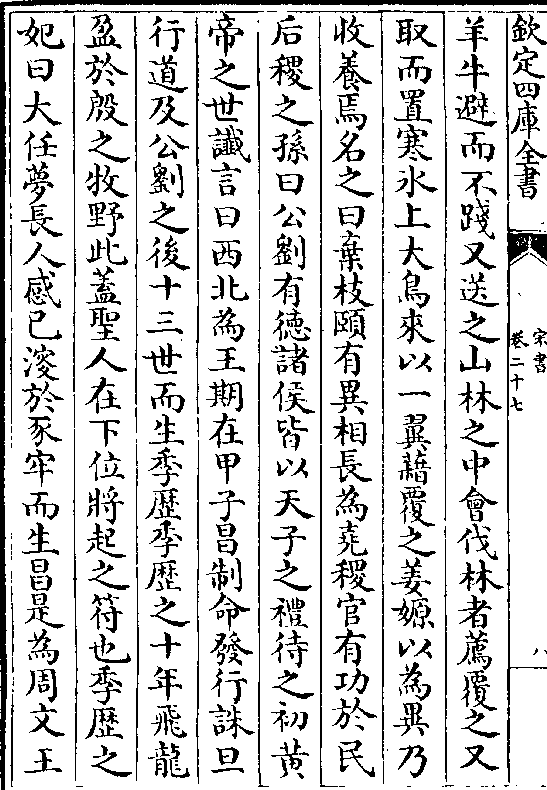 欽定四庫全書
宋書
卷二十七
八
羊牛避而不踐又送之山林之中會伐林者薦覆之又
取而置寒氷上大鳥來以一翼藉覆之姜嫄以為異乃
收養焉名之曰棄枝頤有異相長為堯稷官有功於民
后稷之孫曰公劉有德諸侯皆以天子之禮待之初黄
帝之世讖言曰西北為王期在甲子昌制命發行誅旦
行道及公劉之後十三世而生季歴季歴之十年飛龍
盈於殷之牧野此蓋聖人在下位將起之符也季歴之
妃曰大任夢長人感已溲於豕牢而生昌是為周文王